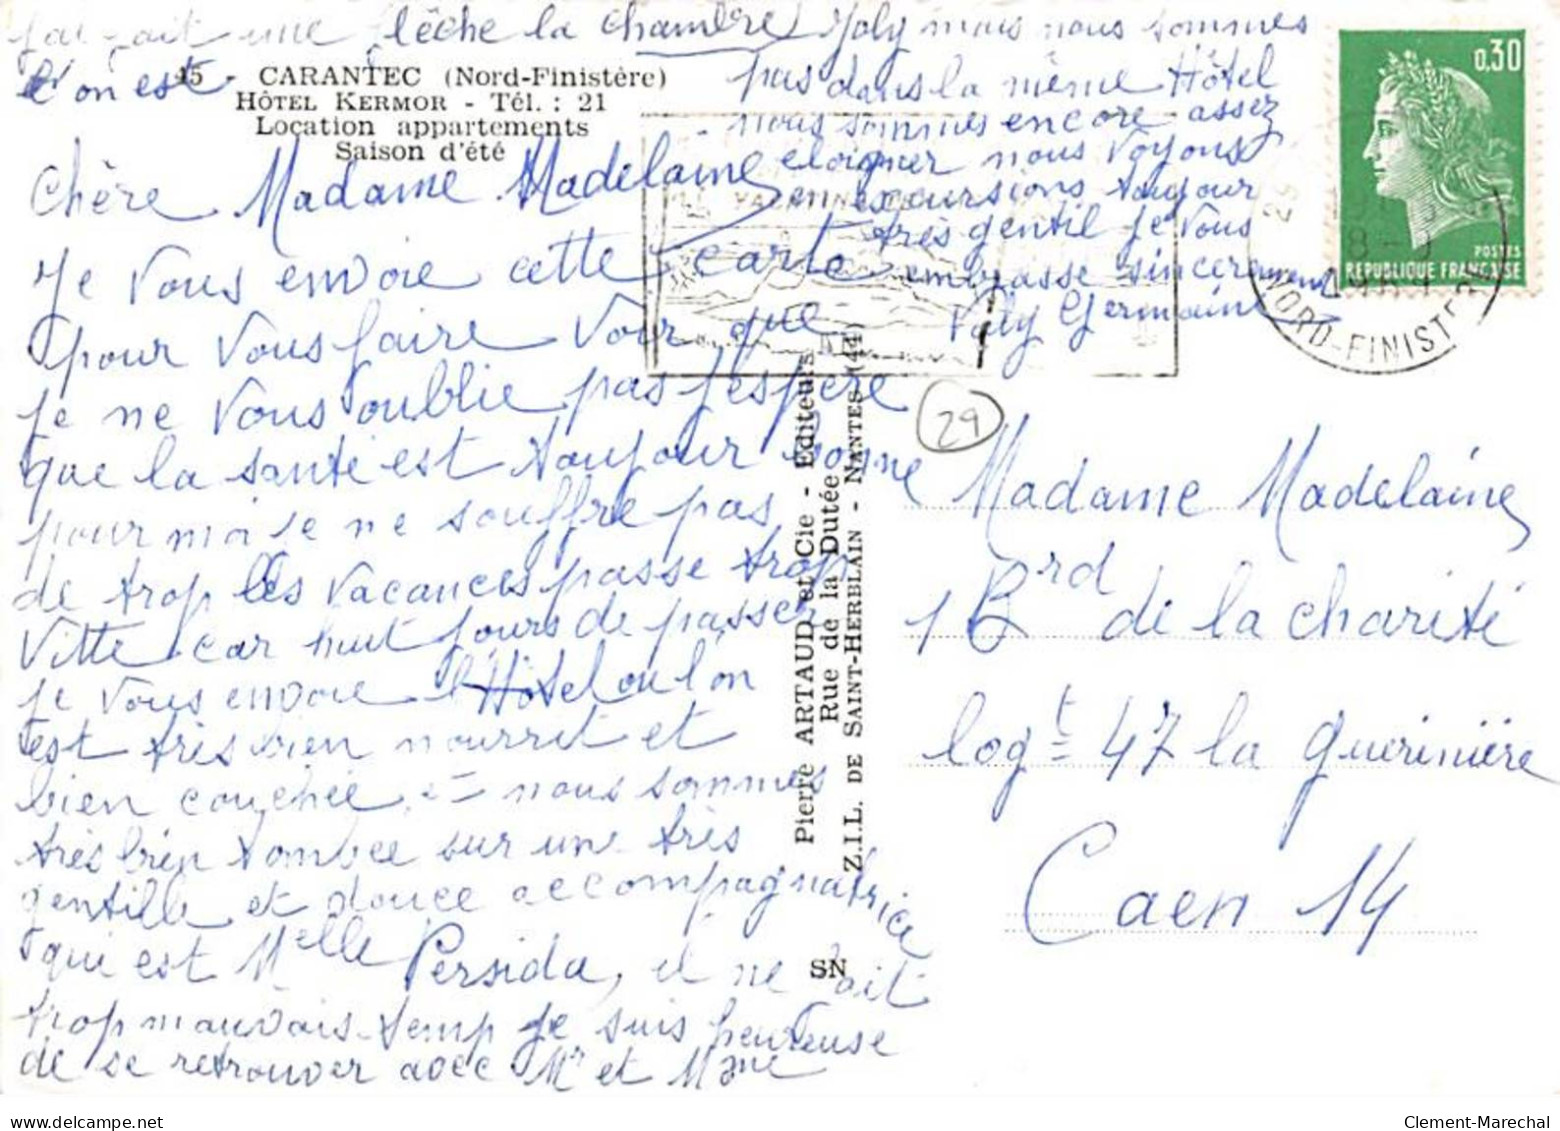 j'ai fait une flêche la chambre
l'on est
45 - CARANTEC (Nord-Finistère)
HÔTEL KERMOR - Tél. : 21
Location appartements
Saison d'été
Chère Madame Madelaine
Je vous envoie cette carte
pour vous faire voir que
je ne vous oublie pas j'espère
que la santé est toujour bonne
pour moi je ne souffre pas
de trop les vacances passe trop
vitte car huit jours de passer
je vous envoie l'Hôtel ou l'on
est très bien nourrit et
bien couchée = nous sommes
très bien tombée sur une très
gentille et douce accompagnatrice
qui est Melle Persida, il ne fait
trop mauvais temp je suis heureuse
de se retrouver avec Mr et Mme
Joly mais nous sommes
pas dans la même Hôtel
nous sommes encore assez
eloigner nous voyons
excursions toujour
très gentil je vous
embrasse sincerement
Germaine
VACANCES
Pierre ARTAUD et Cie - Editeurs
Rue de la Dutée
Z.I.L. DE SAINT-HERBLAIN - NANTES (44)
SN
29
0,30
POSTES
REPUBLIQUE FRANÇAISE
18 - 9
NORD-FINISTERE
Madame Madelaine
1 Brd de la charité
logt 47 la guerinière
Caen 14
Clement-Marechal